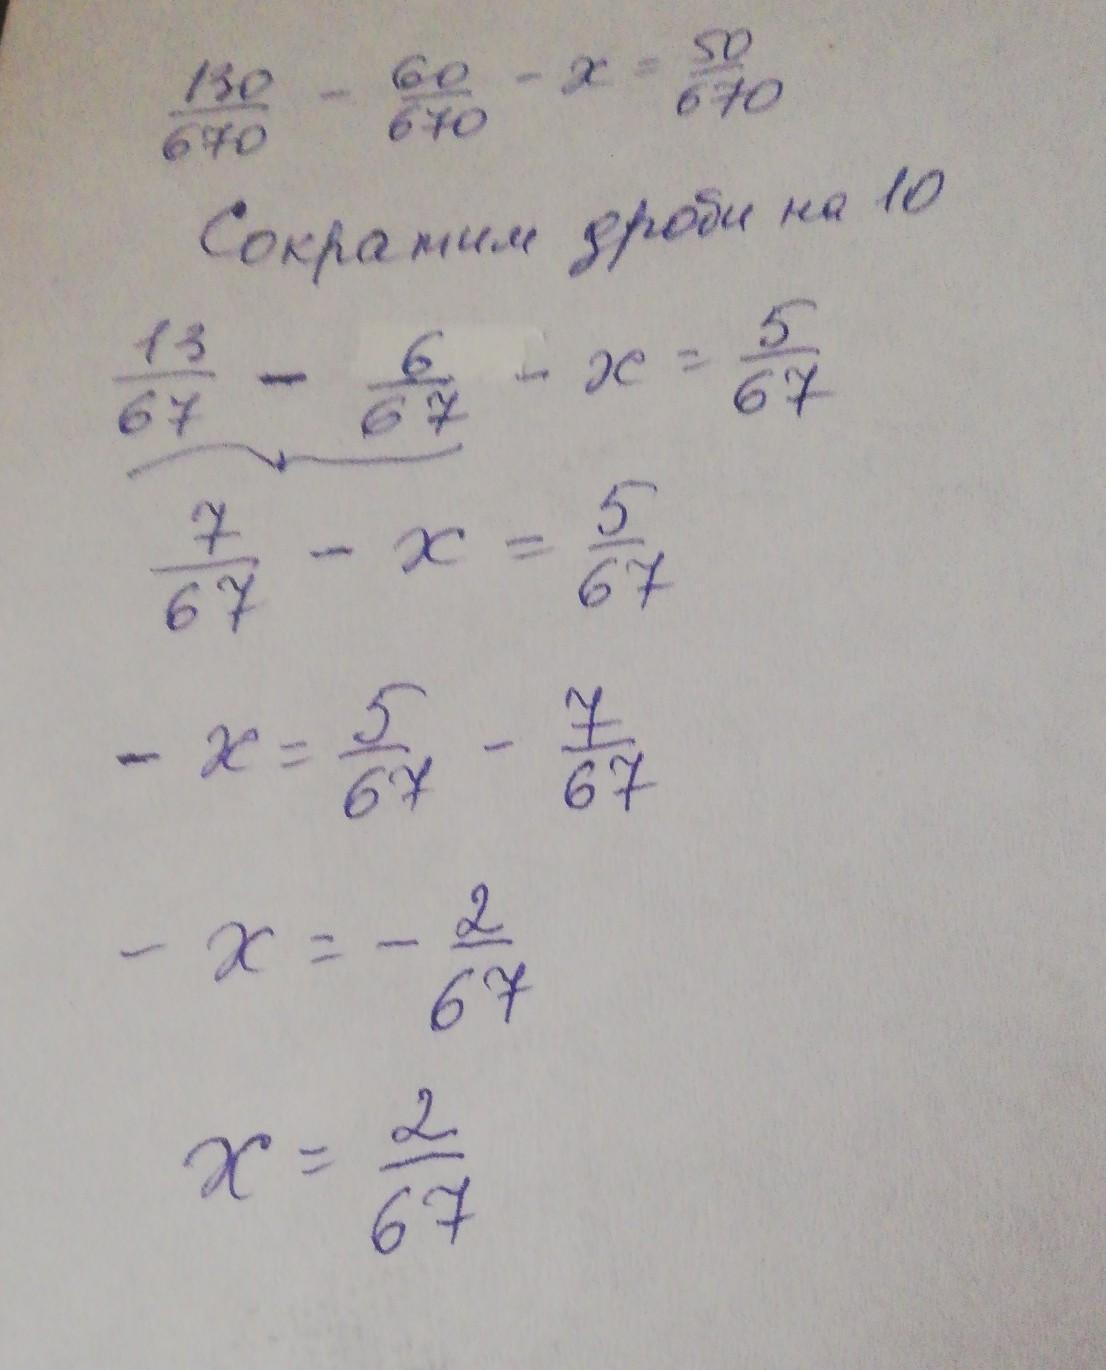 130/670 - 60/670 - x = 50/670
Сократим дроби на 10
13/67 - 6/67 - x = 5/67
7/67 - x = 5/67
- x = 5/67 - 7/67
- x = - 2/67
x = 2/67